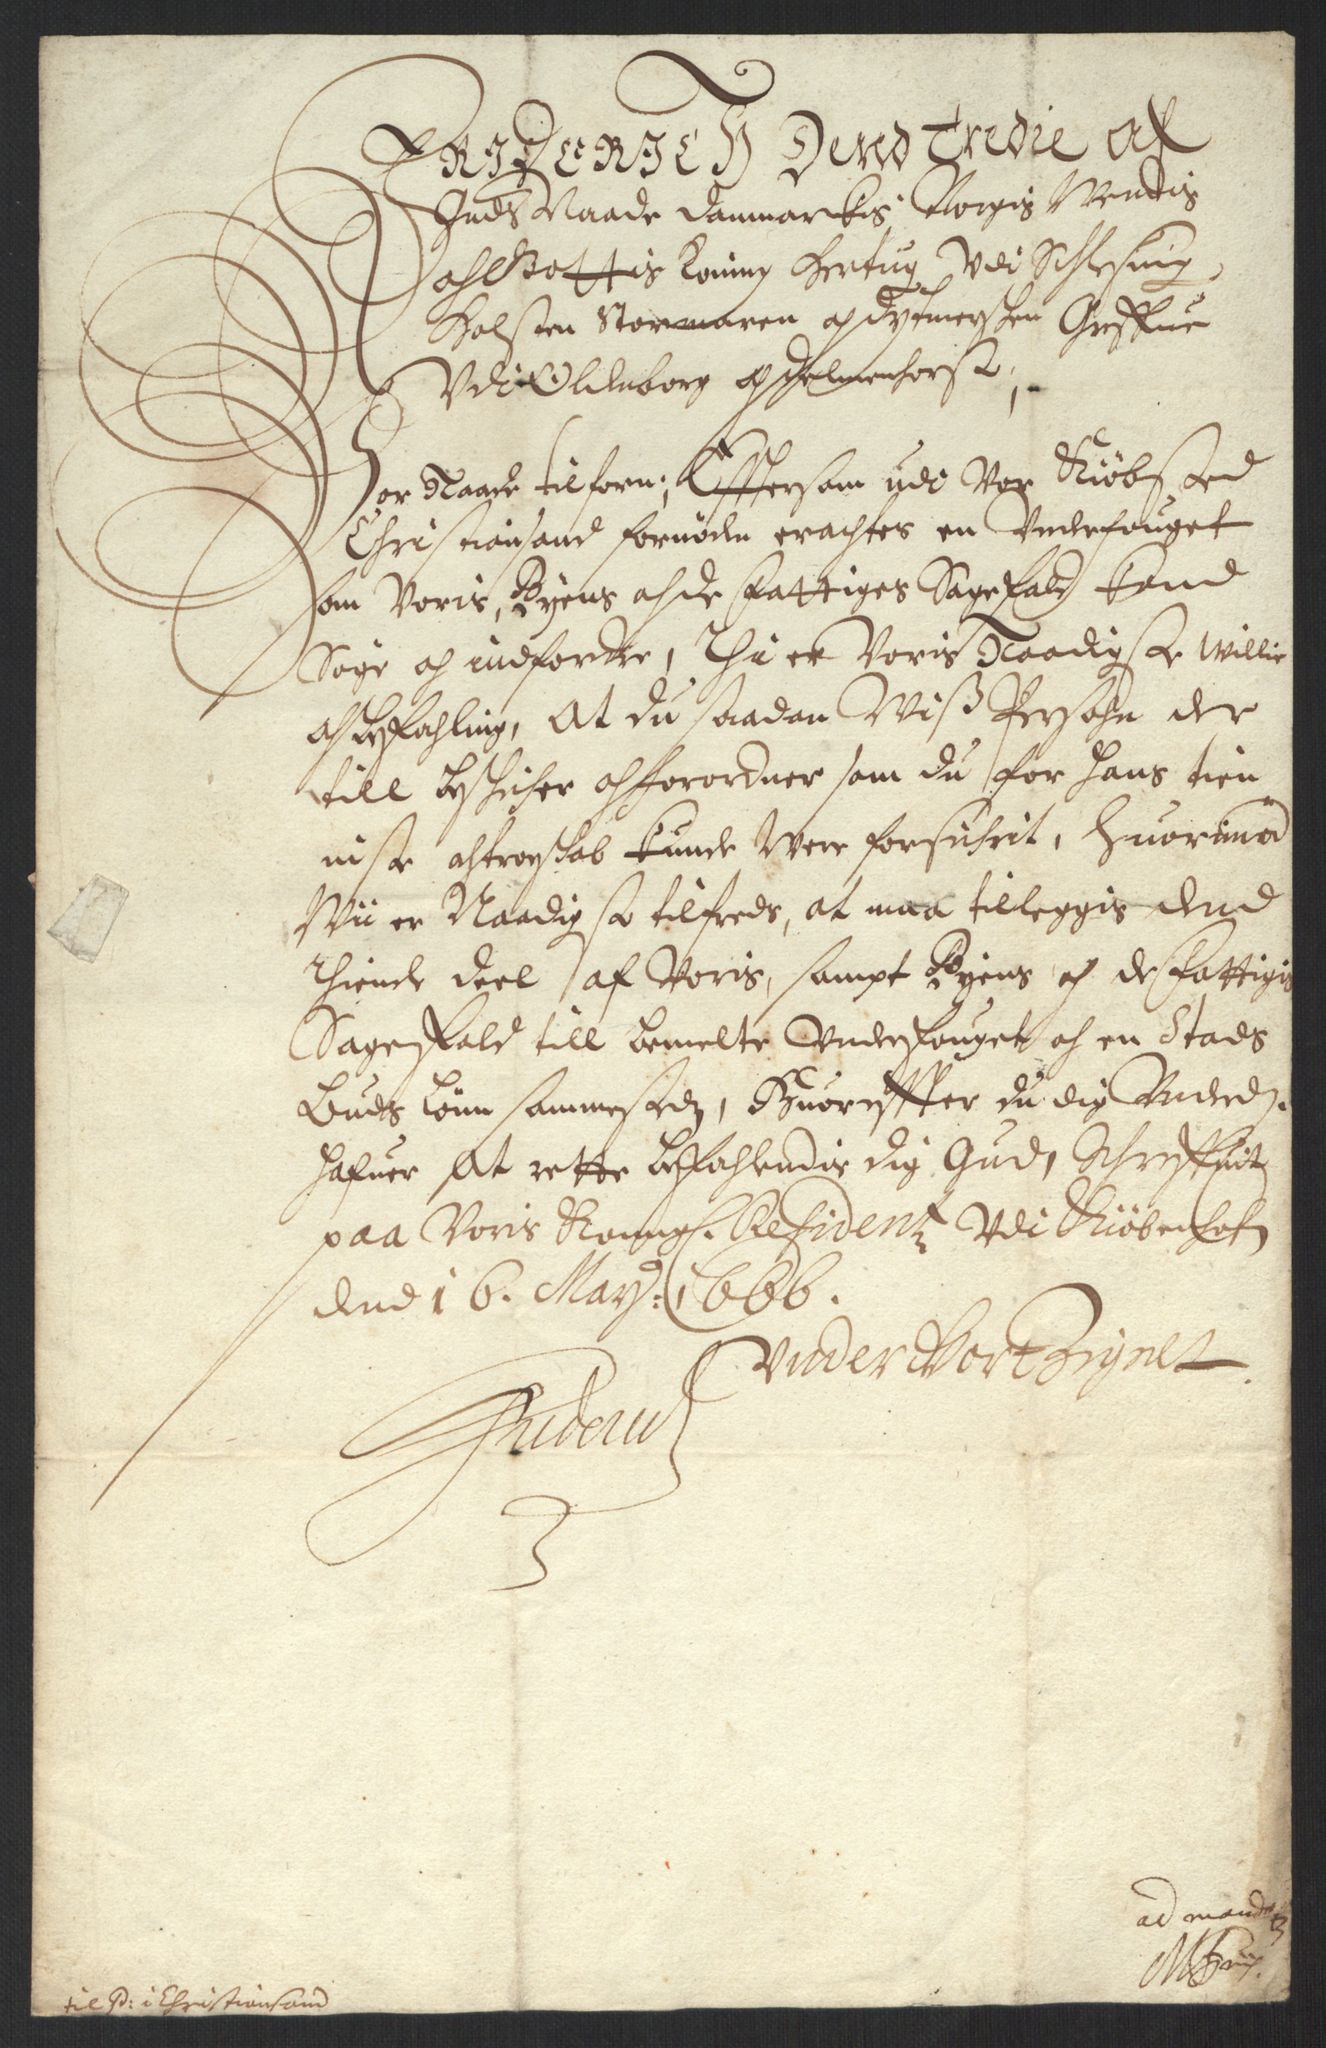 FRIDERICH Dend Tredie Af
Guds Naade Danmarckis Norgis Wendis
och Gottis Konning Hertug Vdi Schlesuig,
Holsten Stormaren og Dytmersken Greffue
Vdi Oldenborg og Delmenhorst,
Vor Naade tilforn; Effter som udi Vor Kiøbsted
Christiansand fornøden erachtes en Underfouget
som Voris, Byens och de fattiges Sagefald kand
Søge og indfordre, Thi er Voris Naadigste Willie
och Befahling, At du saadan Wiss Persohn der
till beskicker och forordner som du for hans tien
niste och troeskab kunde Were forsickrit, Huorimod
Wii er Naadigst tilfreds, at maa tilleggis dend
Thiende deel af Voris, sampt Byens og de fattigis
Sagefald till bemelte Underfouget och en Stads
Buds Lønn sammestedz, Huoreffter du dig Underd:
hafuer At rette Befahlendis dig Gud, Schreffuit
paa Voris Kongl. Residentz Vdi Kiøbenhafn
dend 16. May: 1666.
Vnder Vort Zignet.
Friderich
3
ad mandatum
til P: i Christiansand